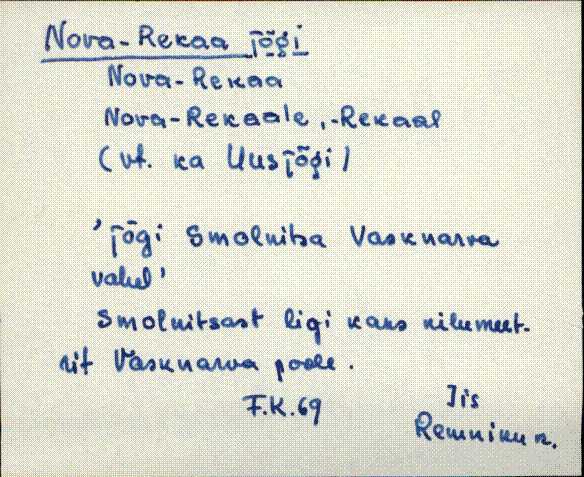 Nova-Rekaa jõgi
Nova-Rekaa
Nova-Rekaale, -Rekaal
(vt. ka Uusjõgi)
'jõgi Smolnitsa Vasknarva
vahel'
Smolnitsast ligi kaks kilumeet-
rit Vasknarva poole.
F.K.69
Iis
Remniku k.